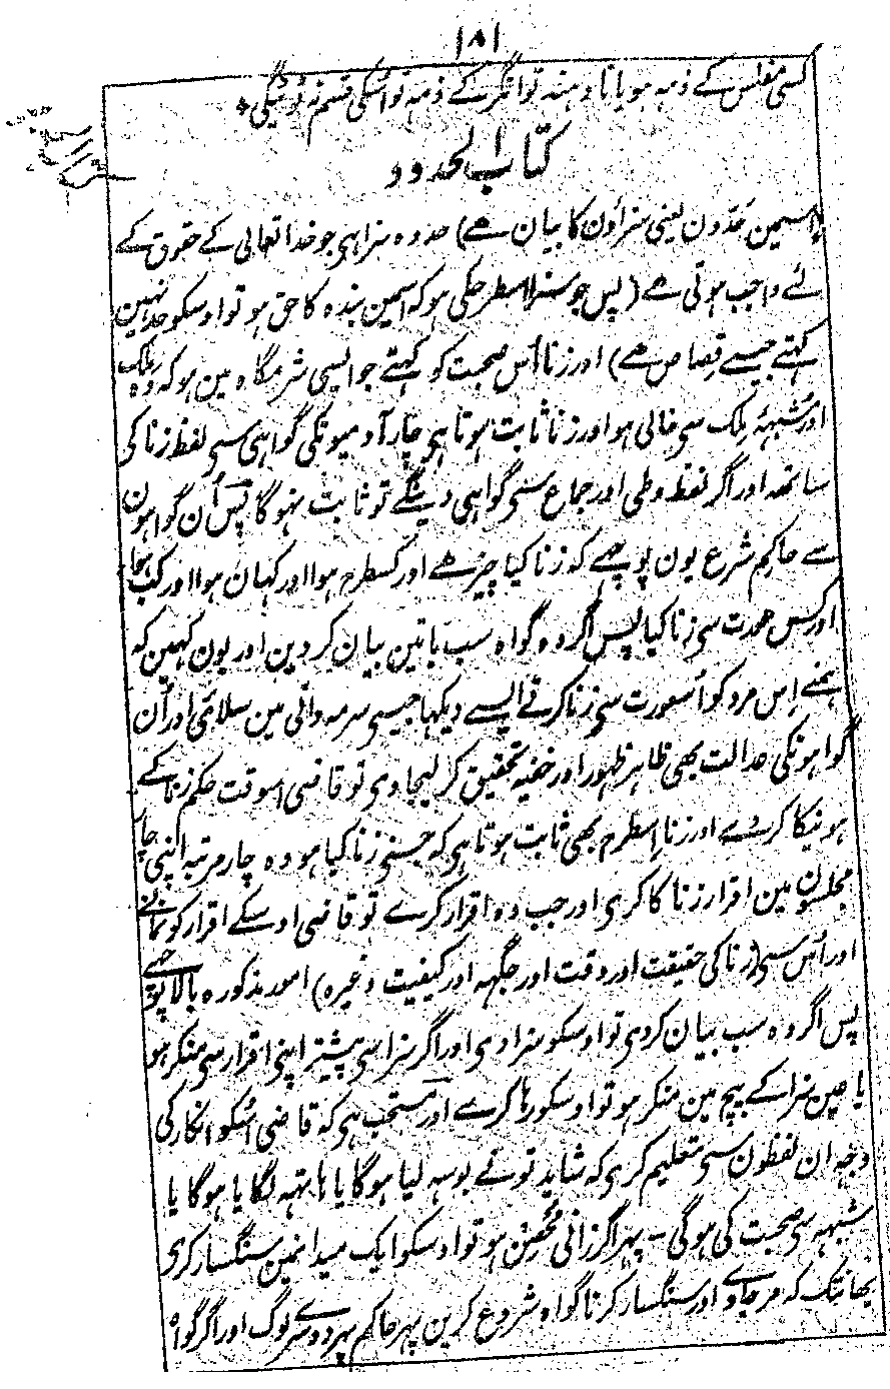 ۱۸۱
کسی مفلس کے ذمہ ہو یا نادہندہ توانگر کے ذمہ تو اسکی قسم نہ ٹوٹیگی
کتاب الحدود
(اسمین حَدّون یعنی سزاؤن کا بیان ہے) حد وہ سزا ہی جو خدا تعالی کے حقوق کے
لئے واجب ہوتی ہے (پس جو سزا اسطرحکی ہو کہ اسمین بندہ کا حق ہو تو اوسکو حد نہین
کہتے جیسے قصاص ہے) اور زنا اُس صحبت کو کہتے جو ایسی شرمگاہ مین ہو کہ وہ ملک
اور شُبہۂ مِلک سی خالی ہو اور زنا ثابت ہوتا ہی چار آدمیونکی گواہی سی لفظ زنا کی
ساتھہ اور اگر لفظ وطی اور جماع سی گواہی دینگے تو ثابت نہوگا پس اُن گواہون
سے حاکم شرع یون پوچھے کہ زنا کیا چیز ہے اور کسطرح ہوا اور کہان ہوا اور کب ہوا
اور کس عورت سی زنا کیا پس اگر وہ گواہ سب باتین بیان کردین اور یون کہین کہ
ہمنے اِس مرد کو اُسعورت سی زنا کرتے ایسے دیکہا جیسی سرمہ دانی مین سلائی اور اُن
گواہونکی عدالت بھی ظاہر ظہور اور خفیہ تحقیق کر لیجاوی تو قاضی اسوقت حکم زنا کے
ہونیکا کردے اور زنا اِسطرح بھی ثابت ہوتا ہی کہ جسنی زنا کیا ہو وہ چار مرتبہ اپنی چار
مجلسون مین اقرار زنا کا کری اور جب وہ اقرار کرے تو قاضی اوسکے اقرار کو نمانے
اور اُس سی (زنا کی حقیقت اور وقت اور جگہہ اور کیفیت وغیرہ) امور مذکورہ بالا پوچھے
پس اگر وہ سب بیان کردی تو اوسکو سزا دی اور اگر سزا سی پیشتر اپنی اقرار سی منکر ہو
یا عین سزا کے بیچ مین منکر ہو تو اوسکو رہا کرے اور مستحب ہی کہ قاضی اُسکو انکار کی
وجہ ان لفظون سی تعلیم کری کہ شاید تونے بوسہ لیا ہوگا یا ہاتہہ لگایا ہوگا یا
شبہہ سی صحبت کی ہوگی - پہر اگر زانی مُحصِن ہو تو اوسکو ایک میدانمین سنگسار کری
یہانتک کہ مر جاوے اور سنگسار کرنا گواہ شروع کرین پہر حاکم پہر دوسرے لوگ اور اگر گواہ